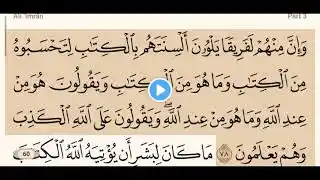 Ali 'Imran
Part 3
وَإِنَّ مِنْهُمْ لَفَرِيقًا يَلْوُۥنَ أَلْسِنَتَهُم بِٱلْكِتَٰبِ لِتَحْسَبُوهُ
مِنَ ٱلْكِتَٰبِ وَمَا هُوَ مِنَ ٱلْكِتَٰبِ وَيَقُولُونَ هُوَ مِنْ
عِندِ ٱللَّهِ وَمَا هُوَ مِنْ عِندِ ٱللَّهِ ۖ وَيَقُولُونَ عَلَى ٱللَّهِ ٱلْكَذِبَ
وَهُمْ يَعْلَمُونَ ٧٨ مَا كَانَ لِبَشَرٍ أَن يُؤْتِيَهُ ٱللَّهُ ٱلْكِتَٰبَ
60